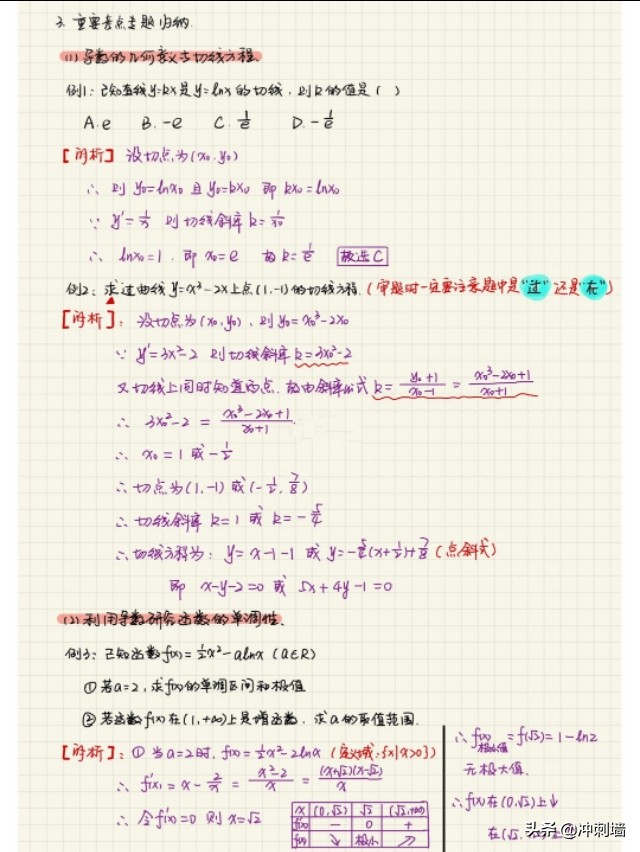 3. 重要考点专题归纳.
(1) 导数的几何意义与切线方程.
例1: 已知直线y=kx是y=lnx的切线, 则k的值是 ( )
A. e B. -e C. 1/e D. -1/e
[解析] 设切点为(x₀, y₀)
∴ 则 y₀=lnx₀ 且 y₀=kx₀ 即 kx₀=lnx₀
∵ y'=1/x 则切线斜率 k=1/x₀
∴ lnx₀=1, 即 x₀=e 故 k=1/e 故选C
例2: 求过曲线 y=x³-2x上点(1,-1)的切线方程. (审题时一定要注意题中是“过”还是“在”)
[解析]: 设切点为(x₀,y₀), 则 y₀=x₀³-2x₀
∵ y'=3x²-2 则切线斜率 k=3x₀²-2
又切线上同时知道两点, 故由斜率公式 k=(y₀+1)/(x₀-1) = (x₀³-2x₀+1)/(x₀+1)
∴ 3x₀²-2 = (x₀³-2x₀+1)/(x₀+1)
∴ x₀=1 或 -1/2
∴ 切点为(1,-1) 或 (-1/2, 7/8)
∴ 切线斜率 k=1 或 k=-5/4
∴ 切线方程为: y=x-1-1 或 y=-5/4(x+1/2)+7/8 (点斜式)
即 x-y-2=0 或 5x+4y-1=0
(2) 利用导数研究函数的单调性.
例3: 已知函数f(x)=1/2x²-alnx (a∈R)
① 若a=2, 求f(x)的单调区间和极值
② 若函数f(x)在(1,+∞)上是增函数, 求a的取值范围.
[解析]: ① 当a=2时, f(x)=1/2x²-2lnx (定义域:{x|x>0})
∴ f'(x)=x-2/x = (x²-2)/x = (x+√2)(x-√2)/x
∴ 令f'(x)=0 则 x=√2
x (0,√2) √2 (√2,+∞)
f'(x) - 0 +
f(x) ↘ 极小 ↗
∴ f(x)极小值=f(√2)=1-ln2
无极大值.
∴ f(x)在(0,√2)上↓
在(√2,
头条 @冲刺墙